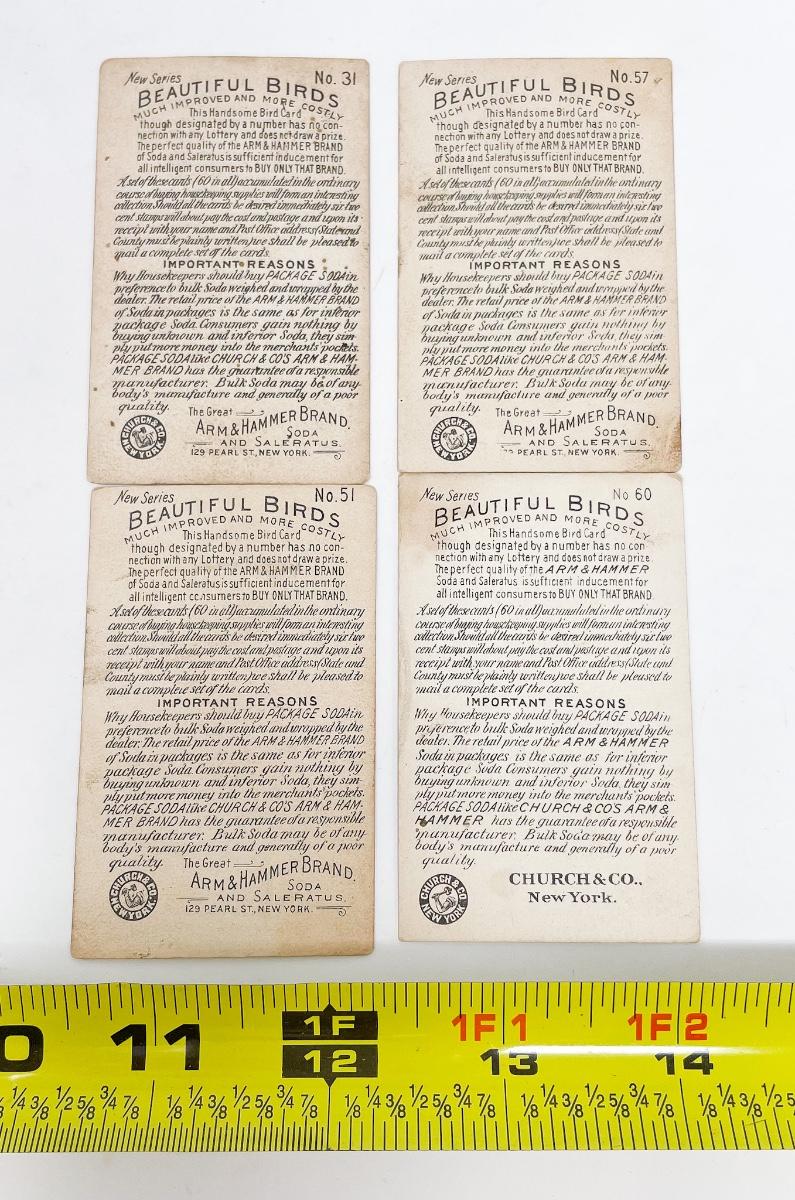 New Series No. 31
BEAUTIFUL BIRDS
MUCH IMPROVED AND MORE COSTLY
This Handsome Bird Card
though designated by a number has no con-
nection with any Lottery and does not draw a prize.
The perfect quality of the ARM & HAMMER BRAND
of Soda and Saleratus is sufficient inducement for
all intelligent consumers to BUY ONLY THAT BRAND.
A set of these cards (60 in all) accumulated in the ordinary
course of buying housekeeping supplies will form an interesting
collection. Should all the cards be desired immediately six two
cent stamps will about pay the cost and postage and upon its
receipt with your name and Post Office address (State and
County must be plainly written) we shall be pleased to
mail a complete set of the cards.
IMPORTANT REASONS
Why Housekeepers should buy PACKAGE SODA in
preference to bulk Soda weighed and wrapped by the
dealer. The retail price of the ARM & HAMMER BRAND
of Soda in packages is the same as for inferior
package Soda. Consumers gain nothing by
buying unknown and inferior Soda, they sim-
ply put more money into the merchants' pockets.
PACKAGE SODA like CHURCH & CO'S ARM & HAM-
MER BRAND has the guarantee of a responsible
manufacturer. Bulk Soda may be of any-
body's manufacture and generally of a poor
quality.
The Great
ARM & HAMMER BRAND.
SODA
AND SALERATUS.
129 PEARL ST., NEW YORK.
CHURCH & CO. NEW YORK
New Series No. 57
BEAUTIFUL BIRDS
MUCH IMPROVED AND MORE COSTLY
This Handsome Bird Card
though designated by a number has no con-
nection with any Lottery and does not draw a prize.
The perfect quality of the ARM & HAMMER BRAND
of Soda and Saleratus is sufficient inducement for
all intelligent consumers to BUY ONLY THAT BRAND.
A set of these cards (60 in all) accumulated in the ordinary
course of buying housekeeping supplies will form an interesting
collection. Should all the cards be desired immediately six two
cent stamps will about pay the cost and postage and upon its
receipt with your name and Post Office address (State and
County must be plainly written) we shall be pleased to
mail a complete set of the cards.
IMPORTANT REASONS
Why Housekeepers should buy PACKAGE SODA in
preference to bulk Soda weighed and wrapped by the
dealer. The retail price of the ARM & HAMMER BRAND
of Soda in packages is the same as for inferior
package Soda. Consumers gain nothing by
buying unknown and inferior Soda, they sim-
ply put more money into the merchants' pockets.
PACKAGE SODA like CHURCH & CO'S ARM & HAM-
MER BRAND has the guarantee of a responsible
manufacturer. Bulk Soda may be of any-
body's manufacture and generally of a poor
quality.
The Great
ARM & HAMMER BRAND.
SODA
AND SALERATUS.
PEARL ST., NEW YORK.
CHURCH & CO. NEW YORK
New Series No. 51
BEAUTIFUL BIRDS
MUCH IMPROVED AND MORE COSTLY
This Handsome Bird Card
though designated by a number has no con-
nection with any Lottery and does not draw a prize.
The perfect quality of the ARM & HAMMER BRAND
of Soda and Saleratus is sufficient inducement for
all intelligent consumers to BUY ONLY THAT BRAND.
A set of these cards (60 in all) accumulated in the ordinary
course of buying housekeeping supplies will form an interesting
collection. Should all the cards be desired immediately six two
cent stamps will about pay the cost and postage and upon its
receipt with your name and Post Office address (State and
County must be plainly written) we shall be pleased to
mail a complete set of the cards.
IMPORTANT REASONS
Why Housekeepers should buy PACKAGE SODA in
preference to bulk Soda weighed and wrapped by the
dealer. The retail price of the ARM & HAMMER BRAND
of Soda in packages is the same as for inferior
package Soda. Consumers gain nothing by
buying unknown and inferior Soda, they sim-
ply put more money into the merchants' pockets.
PACKAGE SODA like CHURCH & CO'S ARM & HAM-
MER BRAND has the guarantee of a responsible
manufacturer. Bulk Soda may be of any-
body's manufacture and generally of a poor
quality.
The Great
ARM & HAMMER BRAND.
SODA
AND SALERATUS.
129 PEARL ST., NEW YORK.
CHURCH & CO. NEW YORK
New Series No 60
BEAUTIFUL BIRDS
MUCH IMPROVED AND MORE COSTLY
This Handsome Bird Card
though designated by a number has no con-
nection with any Lottery and does not draw a prize.
The perfect quality of the ARM & HAMMER
Soda and Saleratus is sufficient inducement for
all intelligent consumers to BUY ONLY THAT BRAND.
A set of these cards (60 in all) accumulated in the ordinary
course of buying housekeeping supplies will form an interesting
collection. Should all the cards be desired immediately six two
cent stamps will about pay the cost and postage and upon its
receipt with your name and Post Office address (State and
County must be plainly written) we shall be pleased to
mail a complete set of the cards.
IMPORTANT REASONS
Why Housekeepers should buy PACKAGE SODA in
preference to bulk Soda weighed and wrapped by the
dealer. The retail price of the ARM & HAMMER
Soda in packages is the same as for inferior
package Soda. Consumers gain nothing by
buying unknown and inferior Soda, they sim-
ply put more money into the merchants' pockets.
PACKAGE SODA like CHURCH & CO'S ARM &
HAMMER has the guarantee of a responsible
manufacturer. Bulk Soda may be of any-
body's manufacture and generally of a poor
quality.
CHURCH & CO.,
New York.
CHURCH & CO. NEW YORK
0 11 1F 12 1F 1 13 1F 2 14
1/4 3/8 1/2 5/8 3/4 7/8 1/8 1/4 3/8 1/2 5/8 3/4 7/8 1/8 1/4 3/8 1/2 5/8 3/4 7/8 1/8 1/4 3/8 1/2 5/8 3/4 7/8 1/8 1/4 3/8 1/2